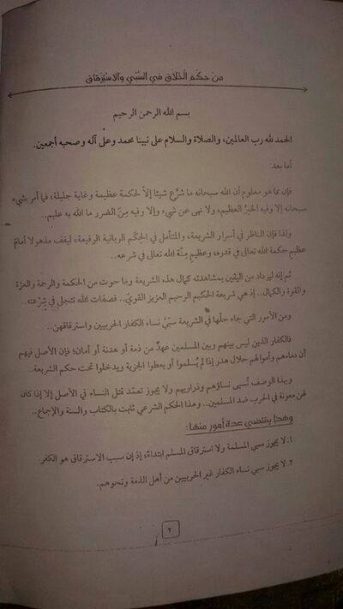 من حِكَم الخلاق في السبي والاسترقاق
بسم الله الرحمن الرحيم
الحمد لله رب العالمين، والصلاة والسلام على نبينا محمد وعلى آله وصحبه أجمعين.
أما بعد
فإن مما هو معلوم أن الله سبحانه ما شرَّع شيئا إلا لحكمة عظيمة وغاية جليلة، فما أمر بشيء
سبحانه إلا وفيه الخير العظيم، ولا نهى عن شيء إلا وفيه من الضرر ما الله به عليم.
ولذا فإن الناظر في أسرار الشريعة، والمتأمل في الحِكَم الربانية الرفيعة، ليقف مذهولا أمام
عظيم حكمة الله تعالى في قدره، وعظيم منَّة الله تعالى في شرعه..
ثم إنه ليزداد من اليقين بمشاهدة كمال هذه الشريعة وما حوت من الحكمة والرحمة والعزة
والقوة والكمال.. إذ هي شريعة الحكيم الرحيم العزيز القويّ.. فصفات الله تتجلى في شرعه..
ومن الأمور التي جاء حلها في الشريعة سبيُ نساء الكفار الحربيين واسترقاقهن..
فالكفار الذين ليس بينهم وبين المسلمين عهدٌ من ذمة أو هدنة أو أمان؛ فإن الأصل فيهم
أن دماءهم وأموالهم حلال هدر إذا لم يُسلموا أو يعطوا الجزية ويدخلوا تحت حكم الشريعة.
وبهذا الوصف تُسبى نساؤهم وذراريهم ولا يجوز تعمّد قتل النساء في الأصل إلا إذا كان
لهن معونة في الحرب ضد المسلمين.. وهذا الحكم الشرعي ثابت بالكتاب والسنة والإجماع.
وهذا يقتضي عدة أمور منها:
١. لا يجوز سبي المسلمة ولا استرقاق المسلم ابتداءً؛ إذ إن سبب الاسترقاق هو الكفر
٢. لا يجوز سبي نساء الكفار غير الحربيين من أهل الذمة ونحوهم.